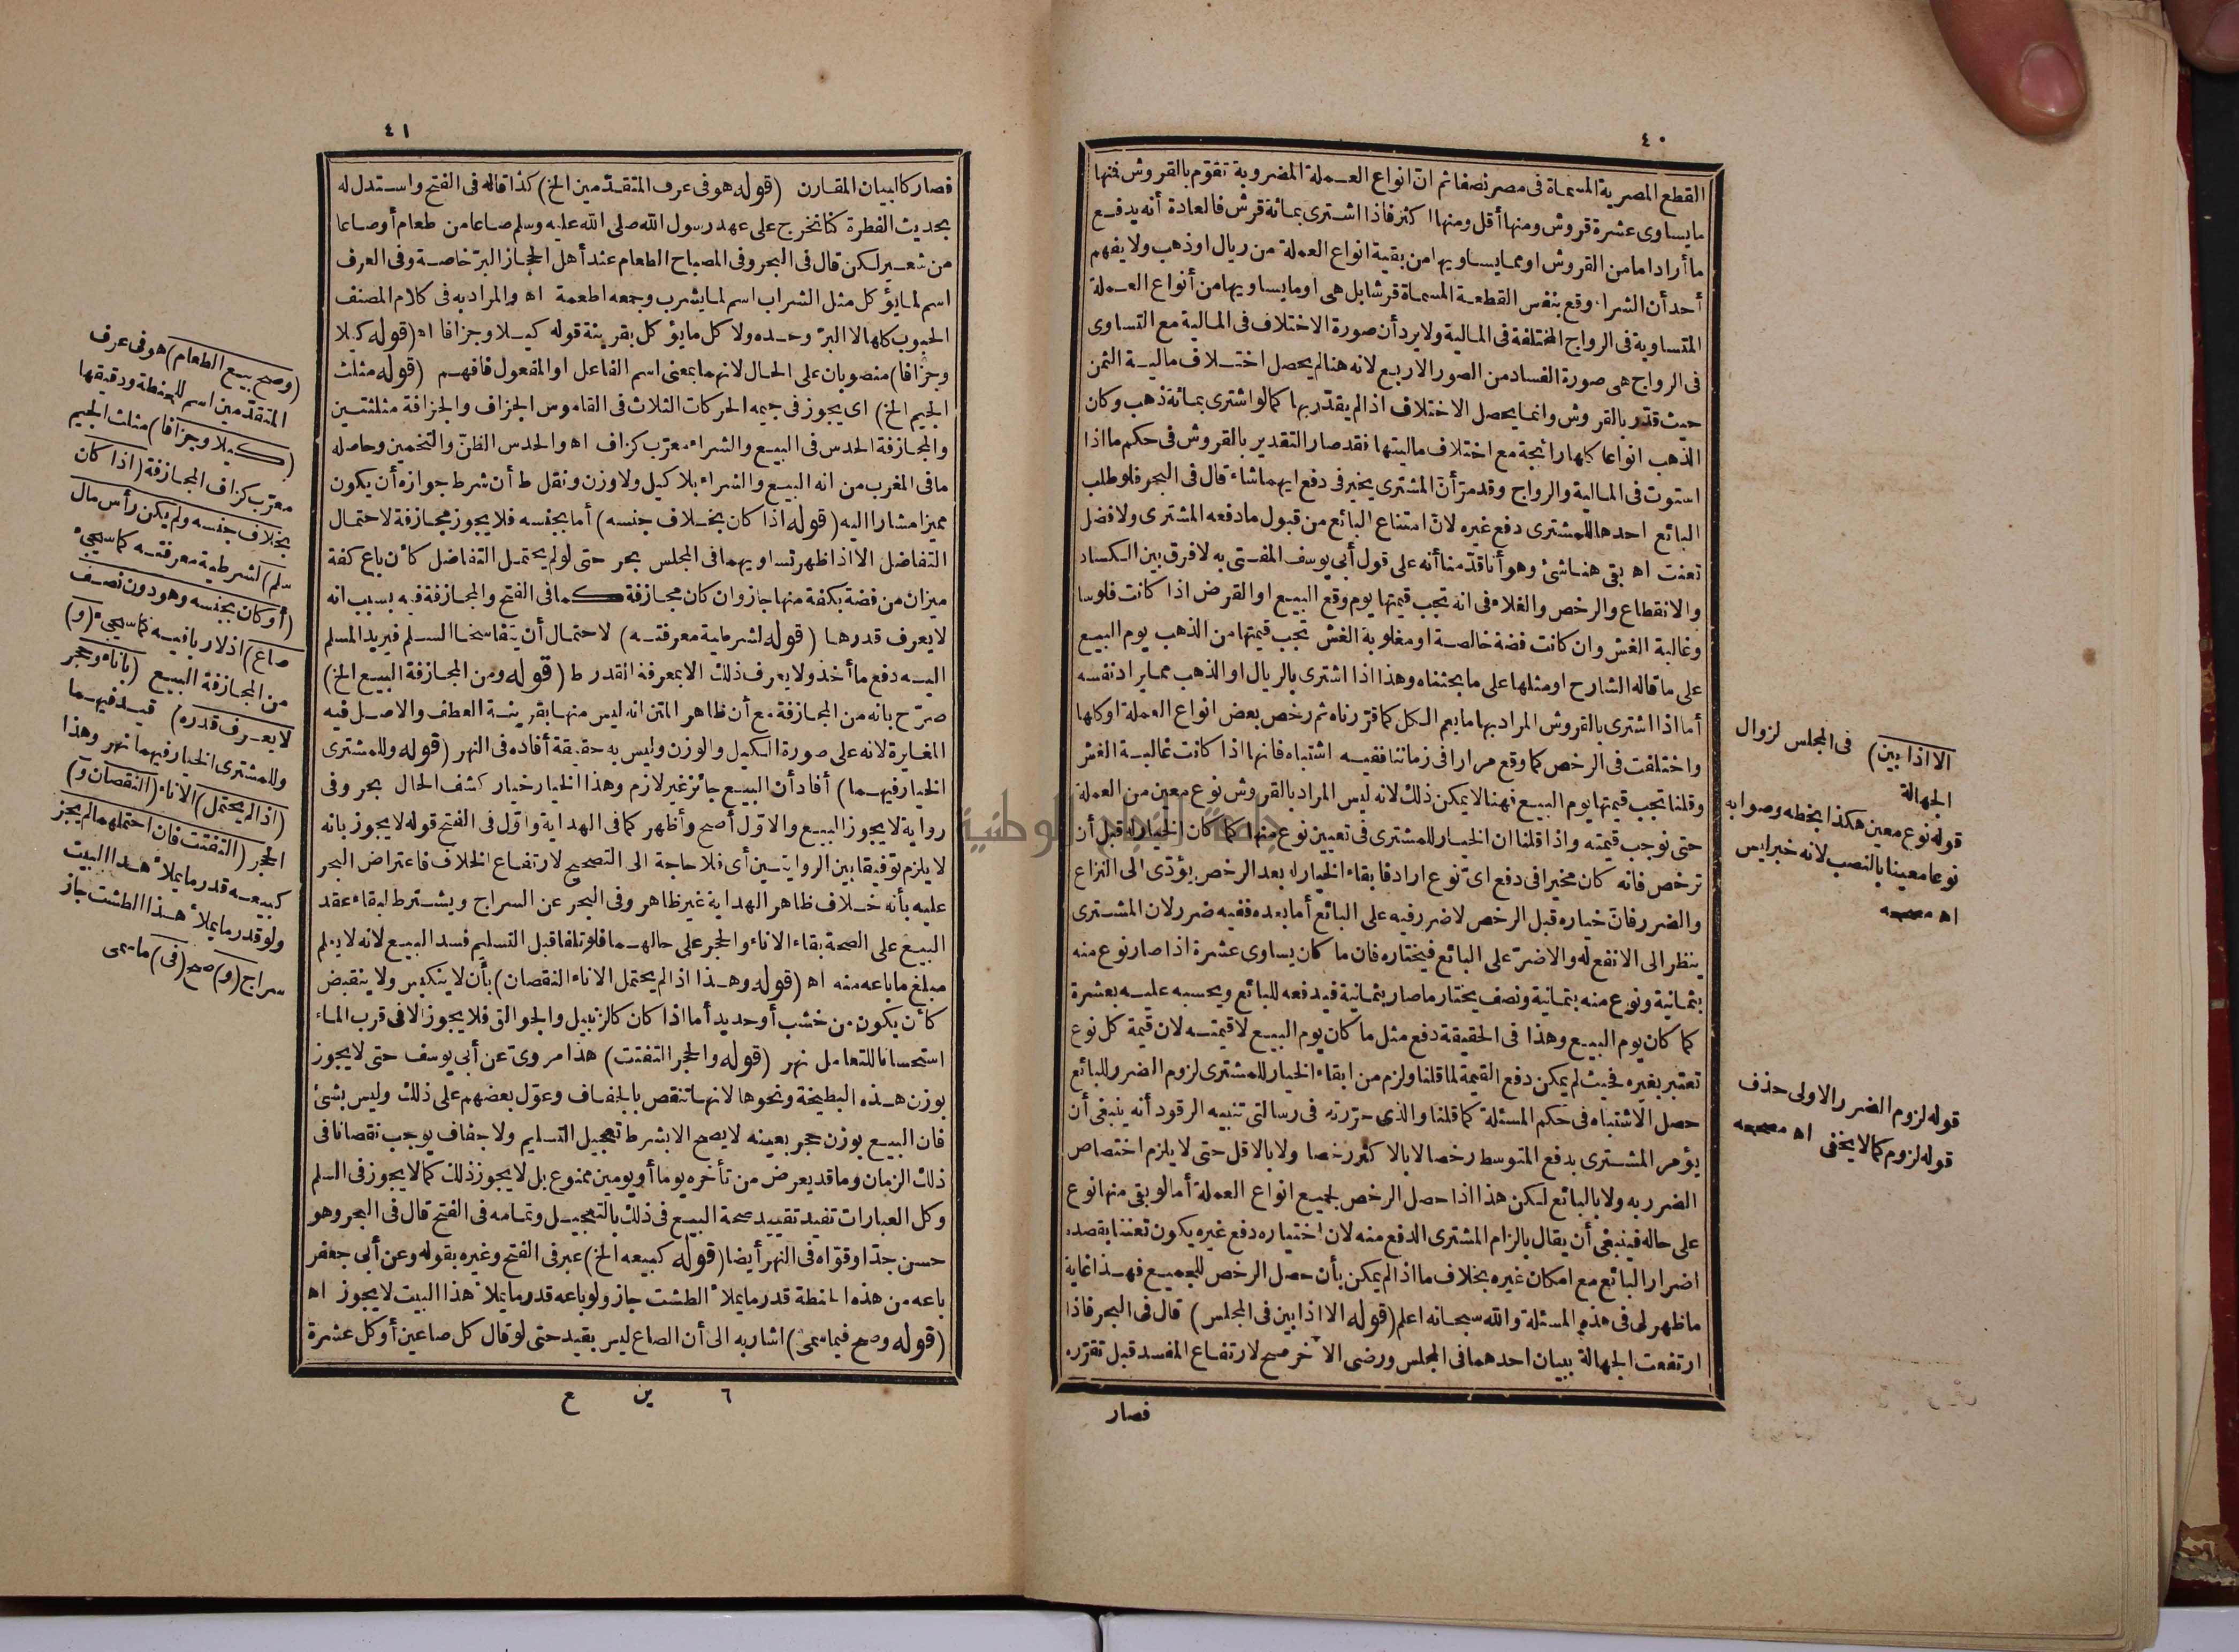 ٤٠
القطع المصرية المسماة فى مصر نصفا ثم ان انواع العملة المضروبة تقوّم بالقروش فمنها
ما يساوى عشرة قروش ومنها أقل ومنها اكثر فاذا اشترى بمائة قرش فالعادة أنه يدفع
ما أراد اما من القروش او مما يساويها من بقية انواع العملة من ريال او ذهب ولا يفهم
أحد أن الشراء وقع بنفس القطعة المسماة قرشا بل هى او ما يساويها من أنواع العملة
المتساوية فى الرواج المختلفة فى المالية ولا يرد أن صورة الاختلاف فى المالية مع التساوى
فى الرواج هى صورة الفساد من الصور الاربع لانه هنا لم يحصل اختلاف مالية الثمن
حيث قدّر بالقروش وانما يحصل الاختلاف اذا لم يقدّر بها كما لو اشترى بمائة ذهب وكان
الذهب انواعا كلها رائجة مع اختلاف ماليتها فقد صار التقدير بالقروش فى حكم ما اذا
استوت فى المالية والرواج وقد مرّ أنّ المشترى يخير فى دفع ايهما شاء قال فى البحر فلو طلب
البائع احدها للمشترى دفع غيره لانّ امتناع البائع من قبول ما دفعه المشترى ولا فضل
تعنت اه بقى هنا شئ وهو أنا قدّمنا أنه على قول أبى يوسف المفتى به لا فرق بين الكساد
والانقطاع والرخص والغلاء فى انه تجب قيمتها يوم وقع البيع او القرض اذا كانت فلوسا
وغالبة الغش وان كانت فضة خالصة او مغلوبة الغش تجب قيمتها من الذهب يوم البيع
على ما قاله الشارح او مثلها على ما بحثناه وهذا اذا اشترى بالريال او الذهب مما يراد نفسه
أما اذا اشترى بالقروش المراد بها ما يعم الكل كما قرّرناه ثم رخص بعض انواع العملة او كلها
واختلفت فى الرخص كما وقع مرارا فى زماننا ففيه اشتباه فانها اذا كانت غالبة الغش
وقلنا تجب قيمتها يوم البيع فهنا لا يمكن ذلك لانه ليس المراد بالقروش نوع معين من العملة
حتى نوجب قيمته واذا قلنا ان الخيار للمشترى فى تعيين نوع منها كما كان الخيار له قبل أن
ترخص فانه كان مخيرا فى دفع اىّ نوع اراد فابقاء الخيار له بعد الرخص يؤدّى الى النزاع
والضرر فانّ خياره قبل الرخص لا ضرر فيه على البائع أما بعده ففيه ضرر لان المشترى
ينظر الى الانفع له والاضرّ على البائع فيختاره فان ما كان يساوى عشرة اذا صار نوع منه
بثمانية ونوع منه بثمانية ونصف يختار ما صار بثمانية فيدفعه للبائع ويحسبه عليه بعشرة
كما كان يوم البيع وهذا فى الحقيقة دفع مثل ما كان يوم البيع لا قيمته لان قيمة كل نوع
تعتبر بغيره فحيث لم يمكن دفع القيمة لما قلنا ولزم من ابقاء الخيار للمشترى لزوم الضرر للبائع
حصل الاشتباه فى حكم المسئلة كما قلنا والذى حرّرته فى رسالتى تنبيه الرقود أنه ينبغى أن
يؤمر المشترى بدفع المتوسط رخصا لا بالاكثر رخصا ولا بالاقل حتى لا يلزم اختصاص
الضرر به ولا بالبائع لكن هذا اذا حصل الرخص لجميع انواع العملة أما لو بقى منها نوع
على حاله فينبغى أن يقال بالزام المشترى الدفع منه لان اختياره دفع غيره يكون تعنتا بقصده
اضرار البائع مع امكان غيره بخلاف ما اذا لم يمكن بأن حصل الرخص للجميع فهذا غاية
ما ظهر لى فى هذه المسئلة والله سبحانه اعلم (قوله الا اذا بين فى المجلس) قال فى البحر فاذا
ارتفعت الجهالة ببيان احدهما فى المجلس ورضى الآخر صح لارتفاع المفسد قبل تقرّره
فصار
الا اذا بين) فى المجلس لزوال
الجهالة
قوله نوع معين هكذا بخطه وصوابه
نوعا معينا بالنصب لانه خبر ليس
اه مصححه
قوله لزوم الضرر الاولى حذف
قوله لزوم كما لا يخفى اه مصححه
٤١
فصار كالبيان المقارن (قوله هو فى عرف المتقدّمين الخ) كذا قاله فى الفتح واستدل له
بحديث الفطرة كنا نخرج على عهد رسول الله صلى الله عليه وسلم صاعا من طعام أو صاعا
من شعير لكن قال فى البحر وفى المصباح الطعام عند أهل الحجاز البرّ خاصة وفى العرف
اسم لما يؤكل مثل الشراب اسم لما يشرب وجمعه اطعمة اه والمراد به فى كلام المصنف
الحبوب كلها لا البرّ وحده ولا كل ما يؤكل بقرينة قوله كيلا وجزافا اه (قوله كيلا
وجزافا) منصوبان على الحال لانهما بمعنى اسم الفاعل او المفعول فافهم (قوله مثلث
الجيم الخ) اى يجوز فى جيمه الحركات الثلاث فى القاموس الجزاف والجزافة مثلثتين
والمجازفة الحدس فى البيع والشراء معرّب كزاف اه والحدس الظنّ والتخمين وحاصله
ما فى المغرب من انه البيع والشراء بلا كيل ولا وزن ونقل ط أن شرط جوازه أن يكون
مميزا مشارا اليه (قوله اذا كان بخلاف جنسه) أما بجنسه فلا يجوز مجازفة لاحتمال
التفاضل الا اذا ظهر تساويهما فى المجلس بحر حتى لو لم يحتمل التفاضل كأن باع كفة
ميزان من فضة بكفة منها جاز وان كان مجازفة كما فى الفتح والمجازفة فيه بسبب انه
لا يعرف قدرها (قوله لشرطية معرفته) لاحتمال أن يتفاسخا السلم فيريد المسلم
اليه دفع ما أخذ ولا يعرف ذلك الا بمعرفة القدر ط (قوله ومن المجازفة البيع الخ)
صرّح بانه من المجازفة مع أن ظاهر المتن انه ليس منها بقرينة العطف والاصل فيه
المغايرة لانه على صورة الكيل والوزن وليس به حقيقة أفاده فى النهر (قوله وللمشترى
الخيار فيهما) أفاد أن البيع جائز غير لازم وهذا الخيار خيار كشف الحال بحر وفى
رواية لا يجوز البيع والاوّل أصح وأظهر كما فى الهداية واوّل فى الفتح قوله لا يجوز بانه
لا يلزم توفيقا بين الروايتين أى فلا حاجة الى التصحيح لارتفاع الخلاف فاعتراض البحر
عليه بأنه خلاف ظاهر الهداية غير ظاهر وفى البحر عن السراج ويشترط لبقاء عقد
البيع على الصحة بقاء الاناء والحجر على حالهما فلو تلفا قبل التسليم فسد البيع لانه لا يعلم
مبلغ ما باعه منه اه (قوله وهذا اذا لم يحتمل الاناء النقصان) بأن لا ينكبس ولا ينقبض
كأن يكون من خشب أو حديد أما اذا كان كالزنبيل والجوالق فلا يجوز الا فى قرب الماء
استحسانا للتعامل نهر (قوله والحجر التفتت) هذا مروىّ عن أبى يوسف حتى لا يجوز
بوزن هذه البطيخة ونحوها لانها تنقص بالجفاف وعوّل بعضهم على ذلك وليس بشئ
فان البيع بوزن حجر بعينه لا يصح الا بشرط تعجيل التسليم ولا جفاف يوجب نقصانا فى
ذلك الزمان وما قد يعرض من تأخره يوما أو يومين ممنوع بل لا يجوز ذلك كما لا يجوز فى السلم
وكل العبارات تفيد تقييد صحة البيع فى ذلك بالتعجيل وتمامه فى الفتح قال فى البحر وهو
حسن جدّا وقوّاه فى النهر أيضا (قوله كبيعه الخ) عبر فى الفتح وغيره بقوله وعن أبى جعفر
باعه من هذه الحنطة قدر ما يملأ الطشت جاز ولو باعه قدر ما يملأ هذا البيت لا يجوز اه
(قوله وصح فيما سمى) اشار به الى أن الصاع ليس بقيد حتى لو قال كل صاعين أو كل عشرة
٦ ين ع
(وصح بيع الطعام) هو فى عرف
المتقدّمين اسم للحنطة ودقيقها
(كيلا وجزافا) مثلث الجيم
معرّب كزاف المجازفة (اذا كان
بخلاف جنسه ولم يكن رأس مال
سلم) لشرطية معرفته كما سيجىء
(أو كان بجنسه وهو دون نصف
صاع) اذ لا ربا فيه كما سيجىء (و)
من المجازفة البيع (باناء وحجر
لا يعرف قدره) قيد فيهما
وللمشترى الخيار فيهما نهر وهذا
(اذا لم يحتمل) الاناء (النقصان و)
الحجر (التفتت فان احتملهما لم يجز
كبيعه قدر ما يملأ هذا البيت
ولو قدر ما يملأ هذا الطشت جاز
سراج (و) صح (فى) ما سمى
جامعة النجاح الوطنية